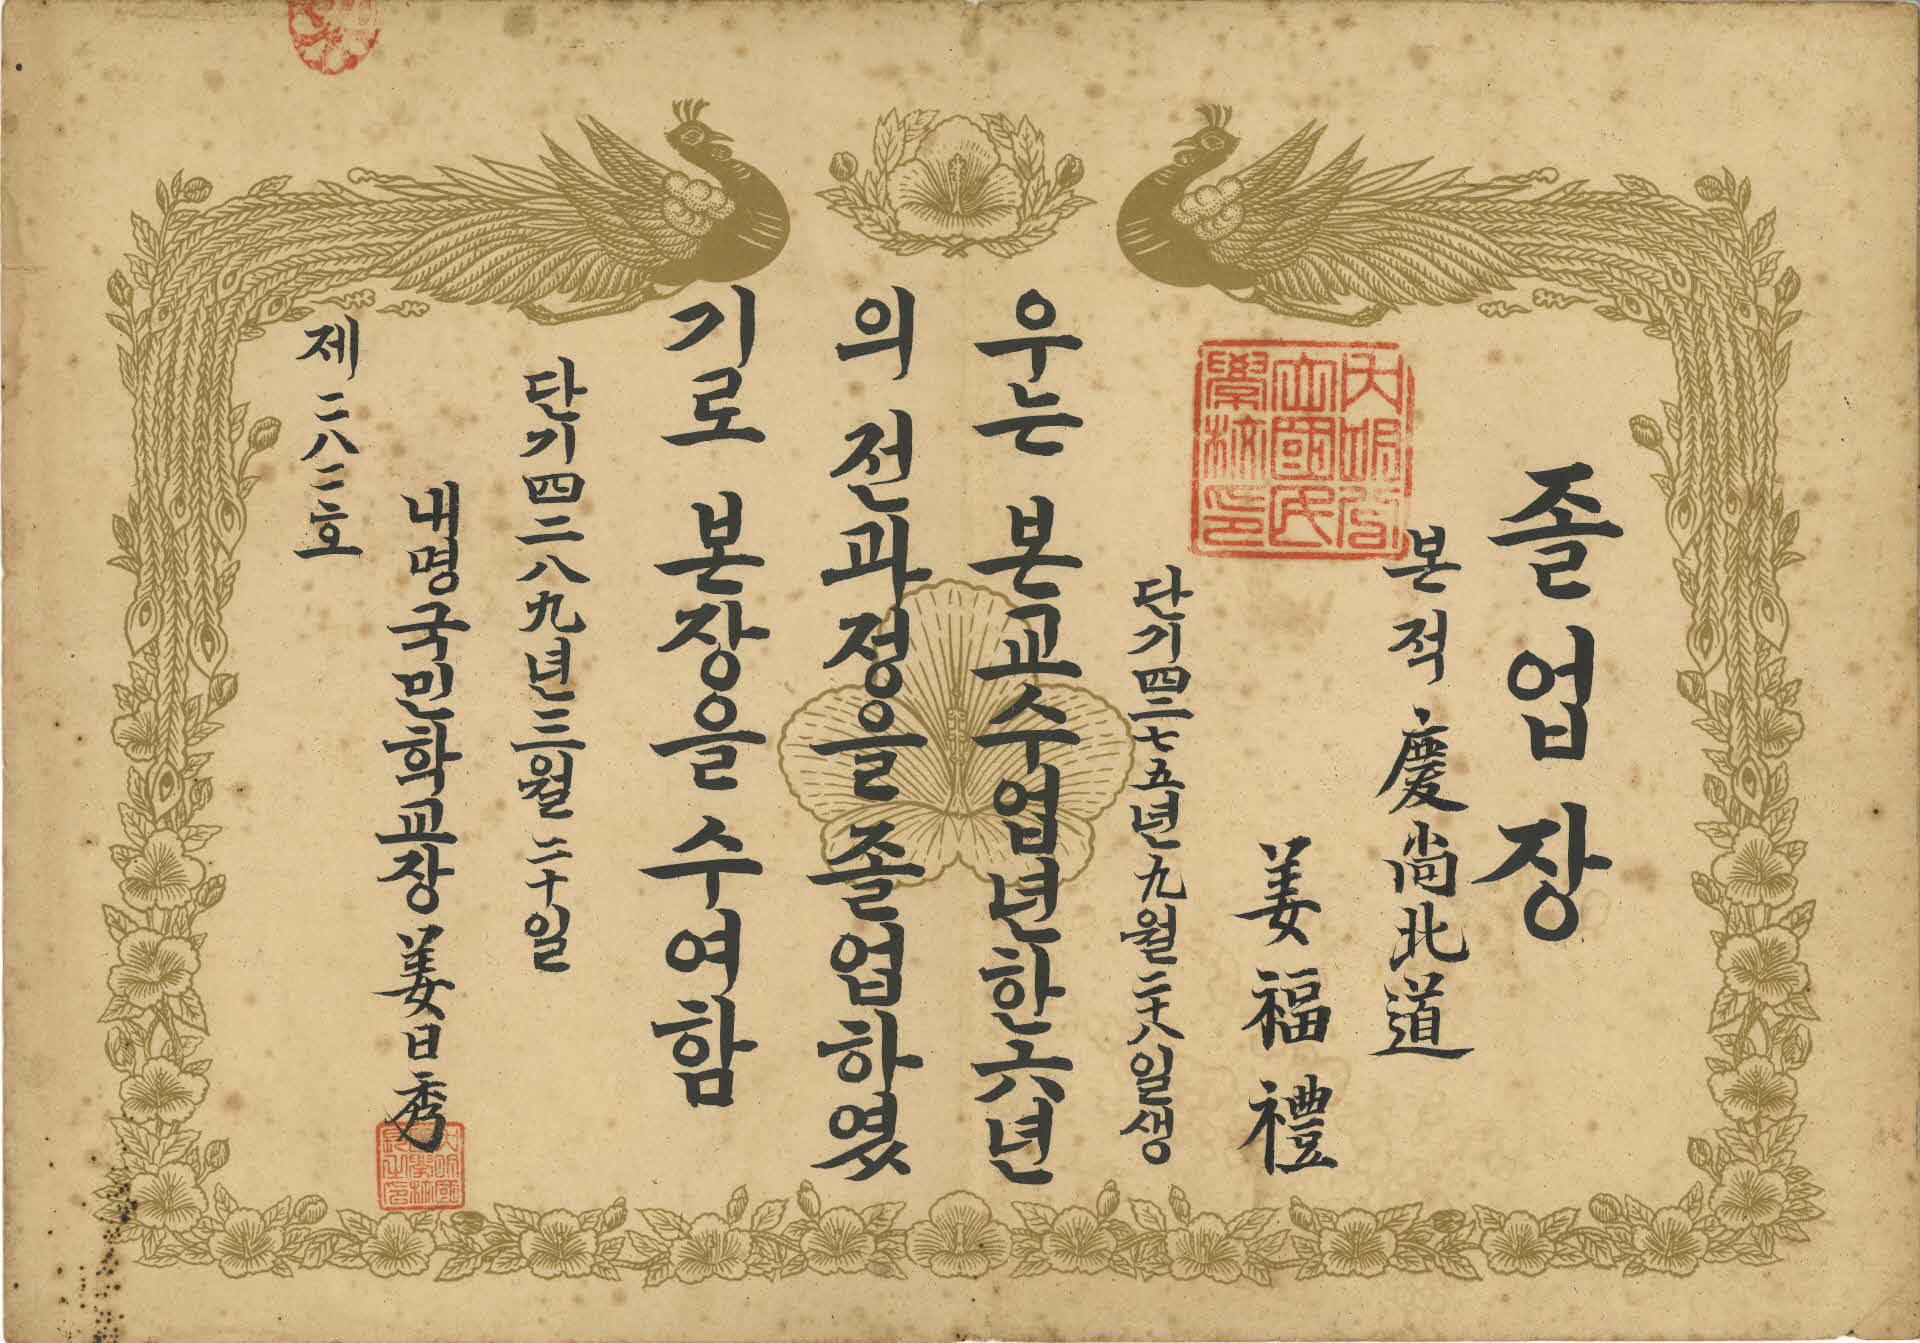 졸업장
본적 慶尙北道
內明公立國民學校印
姜福禮
단기四二七五년九월二十八일생
우는 본교수업년한六년
의 전과정을졸업하였
기로 본장을 수여함
단기四二八九년三월二十일
내명국민학교장 姜日秀
內明國民學校長之印
제二八二호